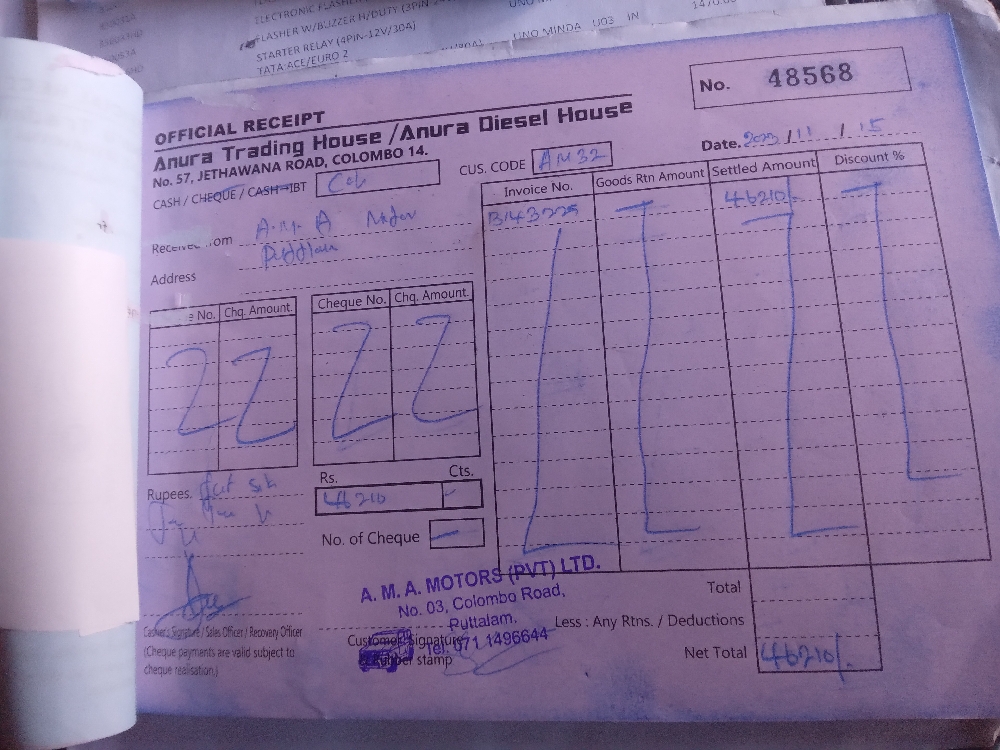 ELECTRONIC FLASHER
FLASHER W/BUZZER H/DUTY (3PIN
STARTER RELAY (4PIN-12V/30A)
TATA ACE/EURO 2
UNO MINDA U03 IN
No. 48568
OFFICIAL RECEIPT
Anura Trading House /Anura Diesel House
No. 57, JETHAWANA ROAD, COLOMBO 14.
CASH / CHEQUE / CASH-IBT
CUS. CODE AM32
Date. 2023 / 11 / 15
Received From A.M.A Motor
Address Puttlam
Invoice No. Goods Rtn Amount Settled Amount Discount %
B143225 46210/-
No. Chq. Amount. Cheque No. Chq. Amount.
Rupees.
Rs. Cts.
46210 -
No. of Cheque -
A. M. A. MOTORS (PVT) LTD.
No. 03, Colombo Road,
Puttalam.
Tel: 071 1496644
Total
Less : Any Rtns. / Deductions
Net Total 46210/-
Cashier's Signature / Sales Officer / Recovery Officer
(Cheque payments are valid subject to
cheque realisation.)
Customer Signature
Rubber stamp